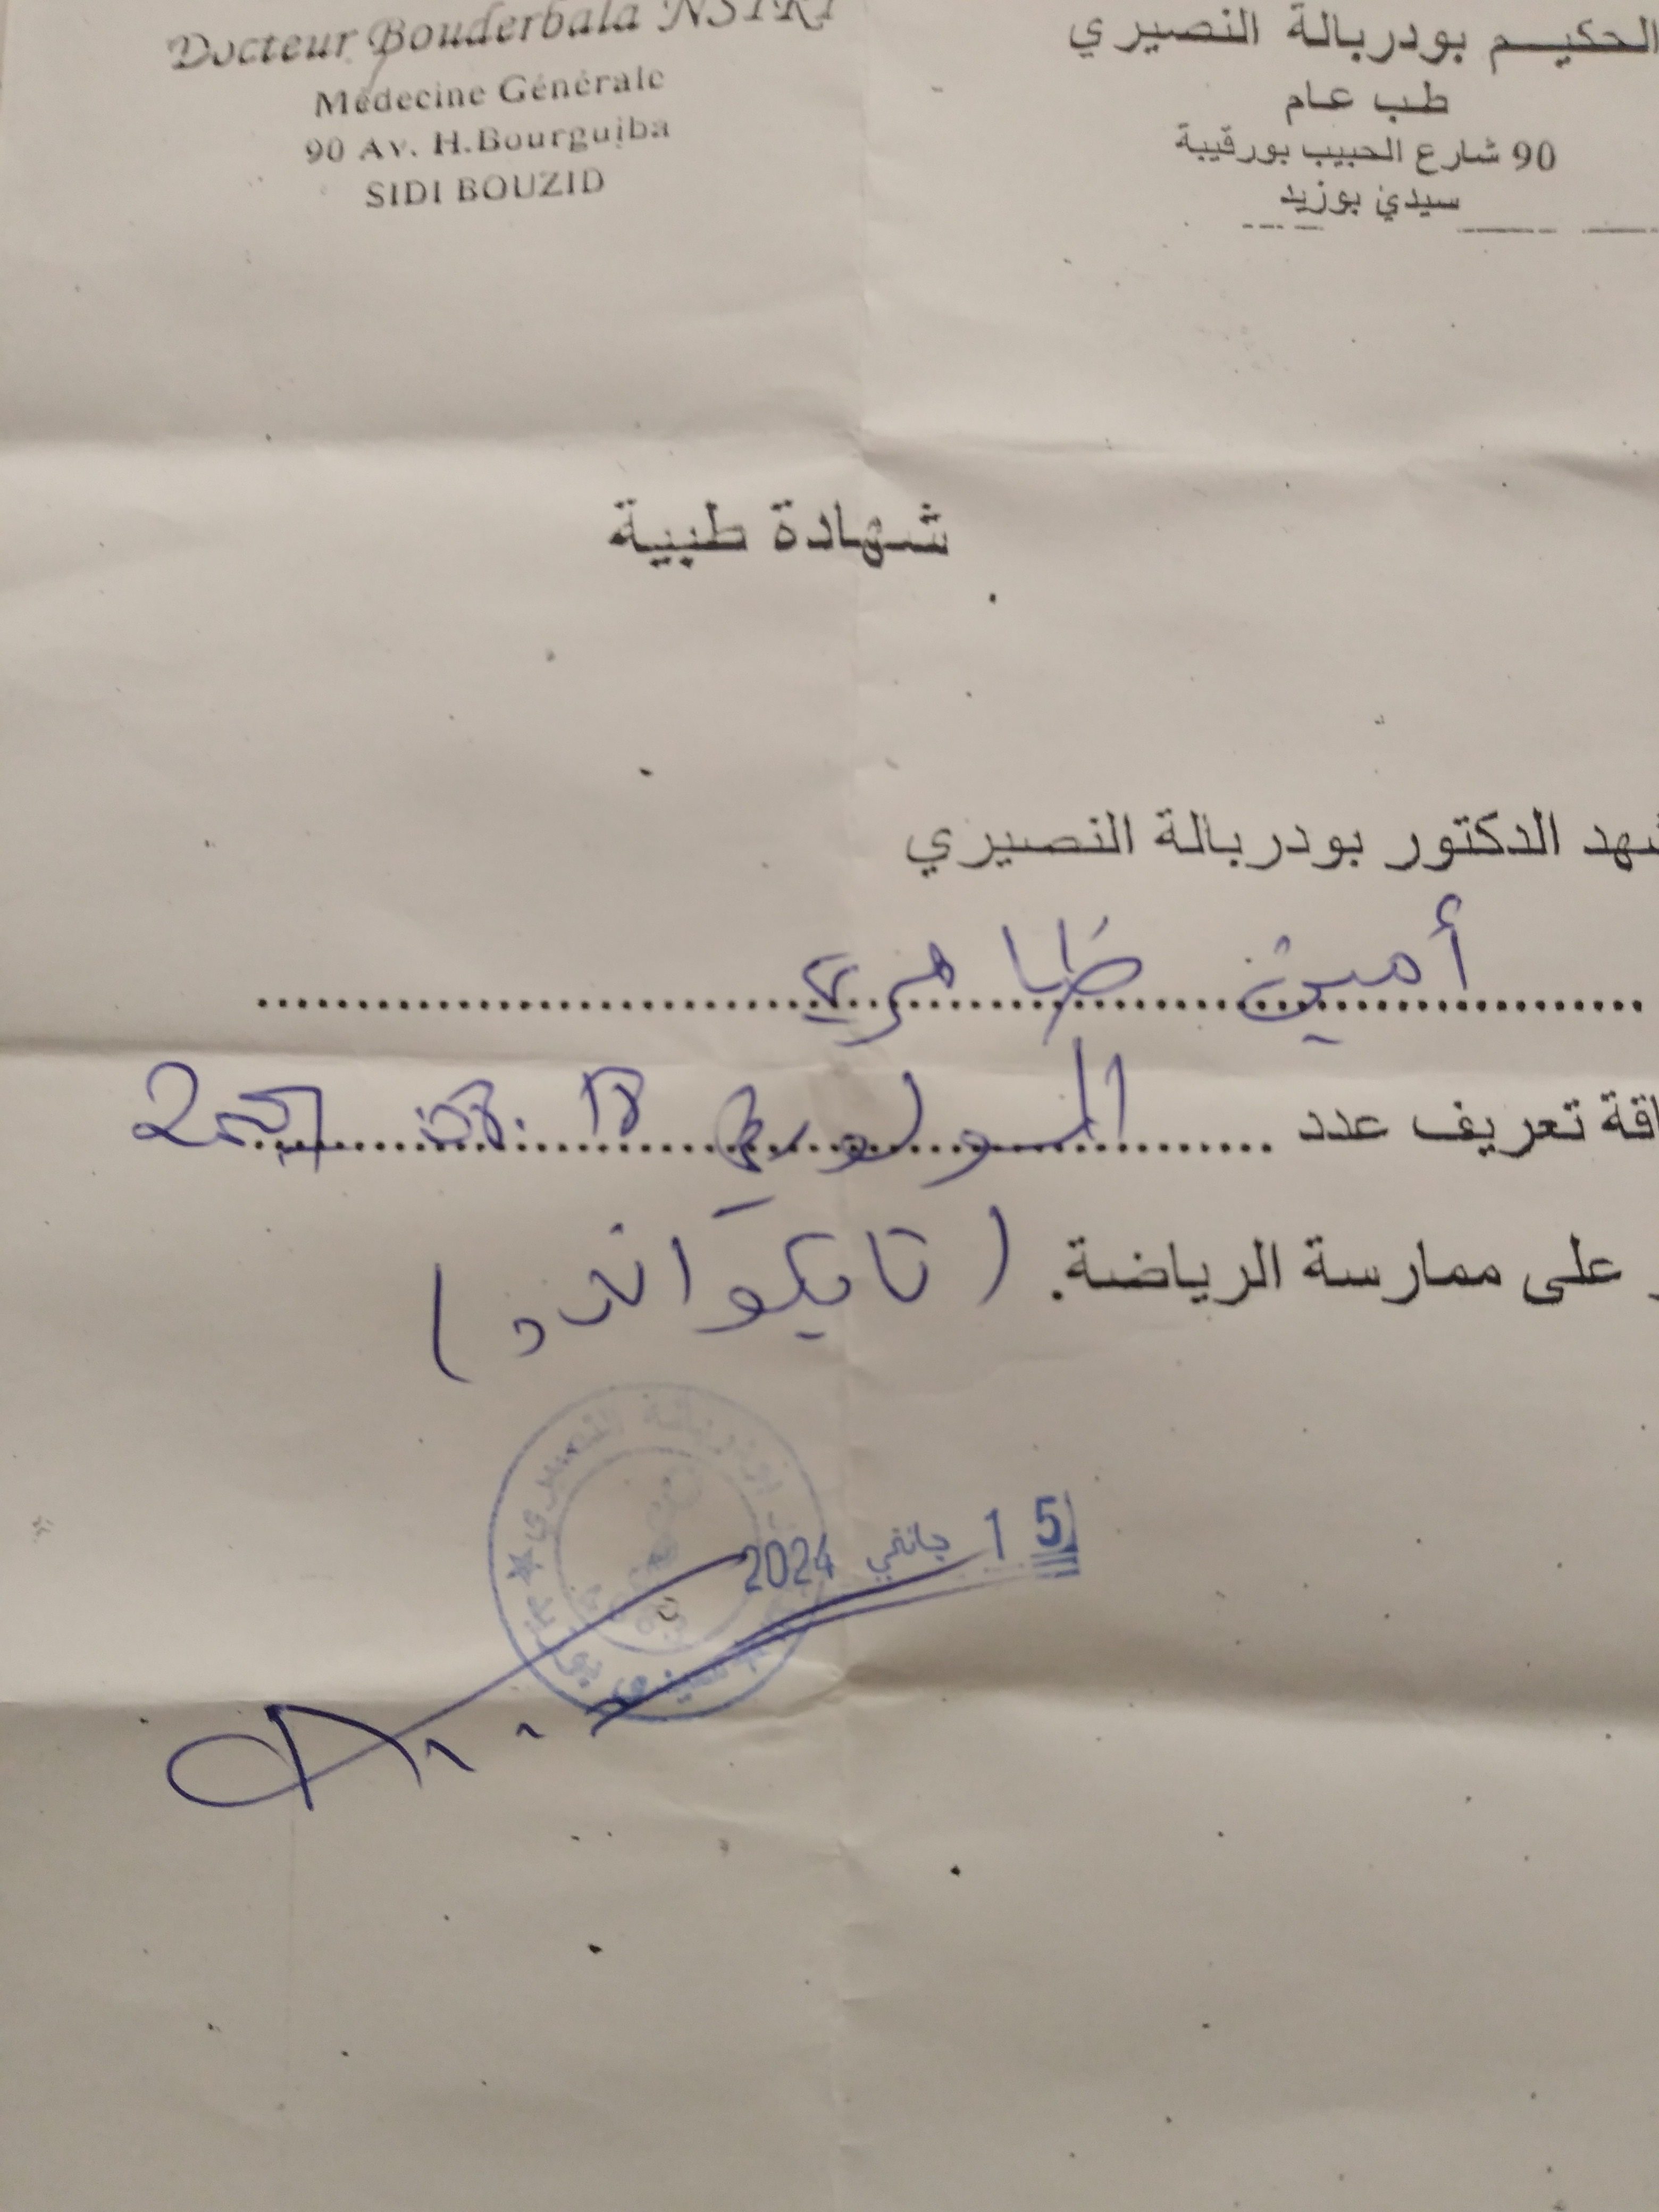 Docteur Bouderbala NSIRI
Médecine Générale
90 Av. H.Bourguiba
SIDI BOUZID
الحكيم بودربالة النصيري
طب عام
90 شارع الحبيب بورقيبة
سيدي بوزيد
شهادة طبية
الدكتور بودربالة النصيري
أمين طاهري
تعريف عدد المولود في 18 .08.
على ممارسة الرياضة. (تايكواندو)
15 جانفي 2024
بودربالة النصيري
سيدي بوزيد